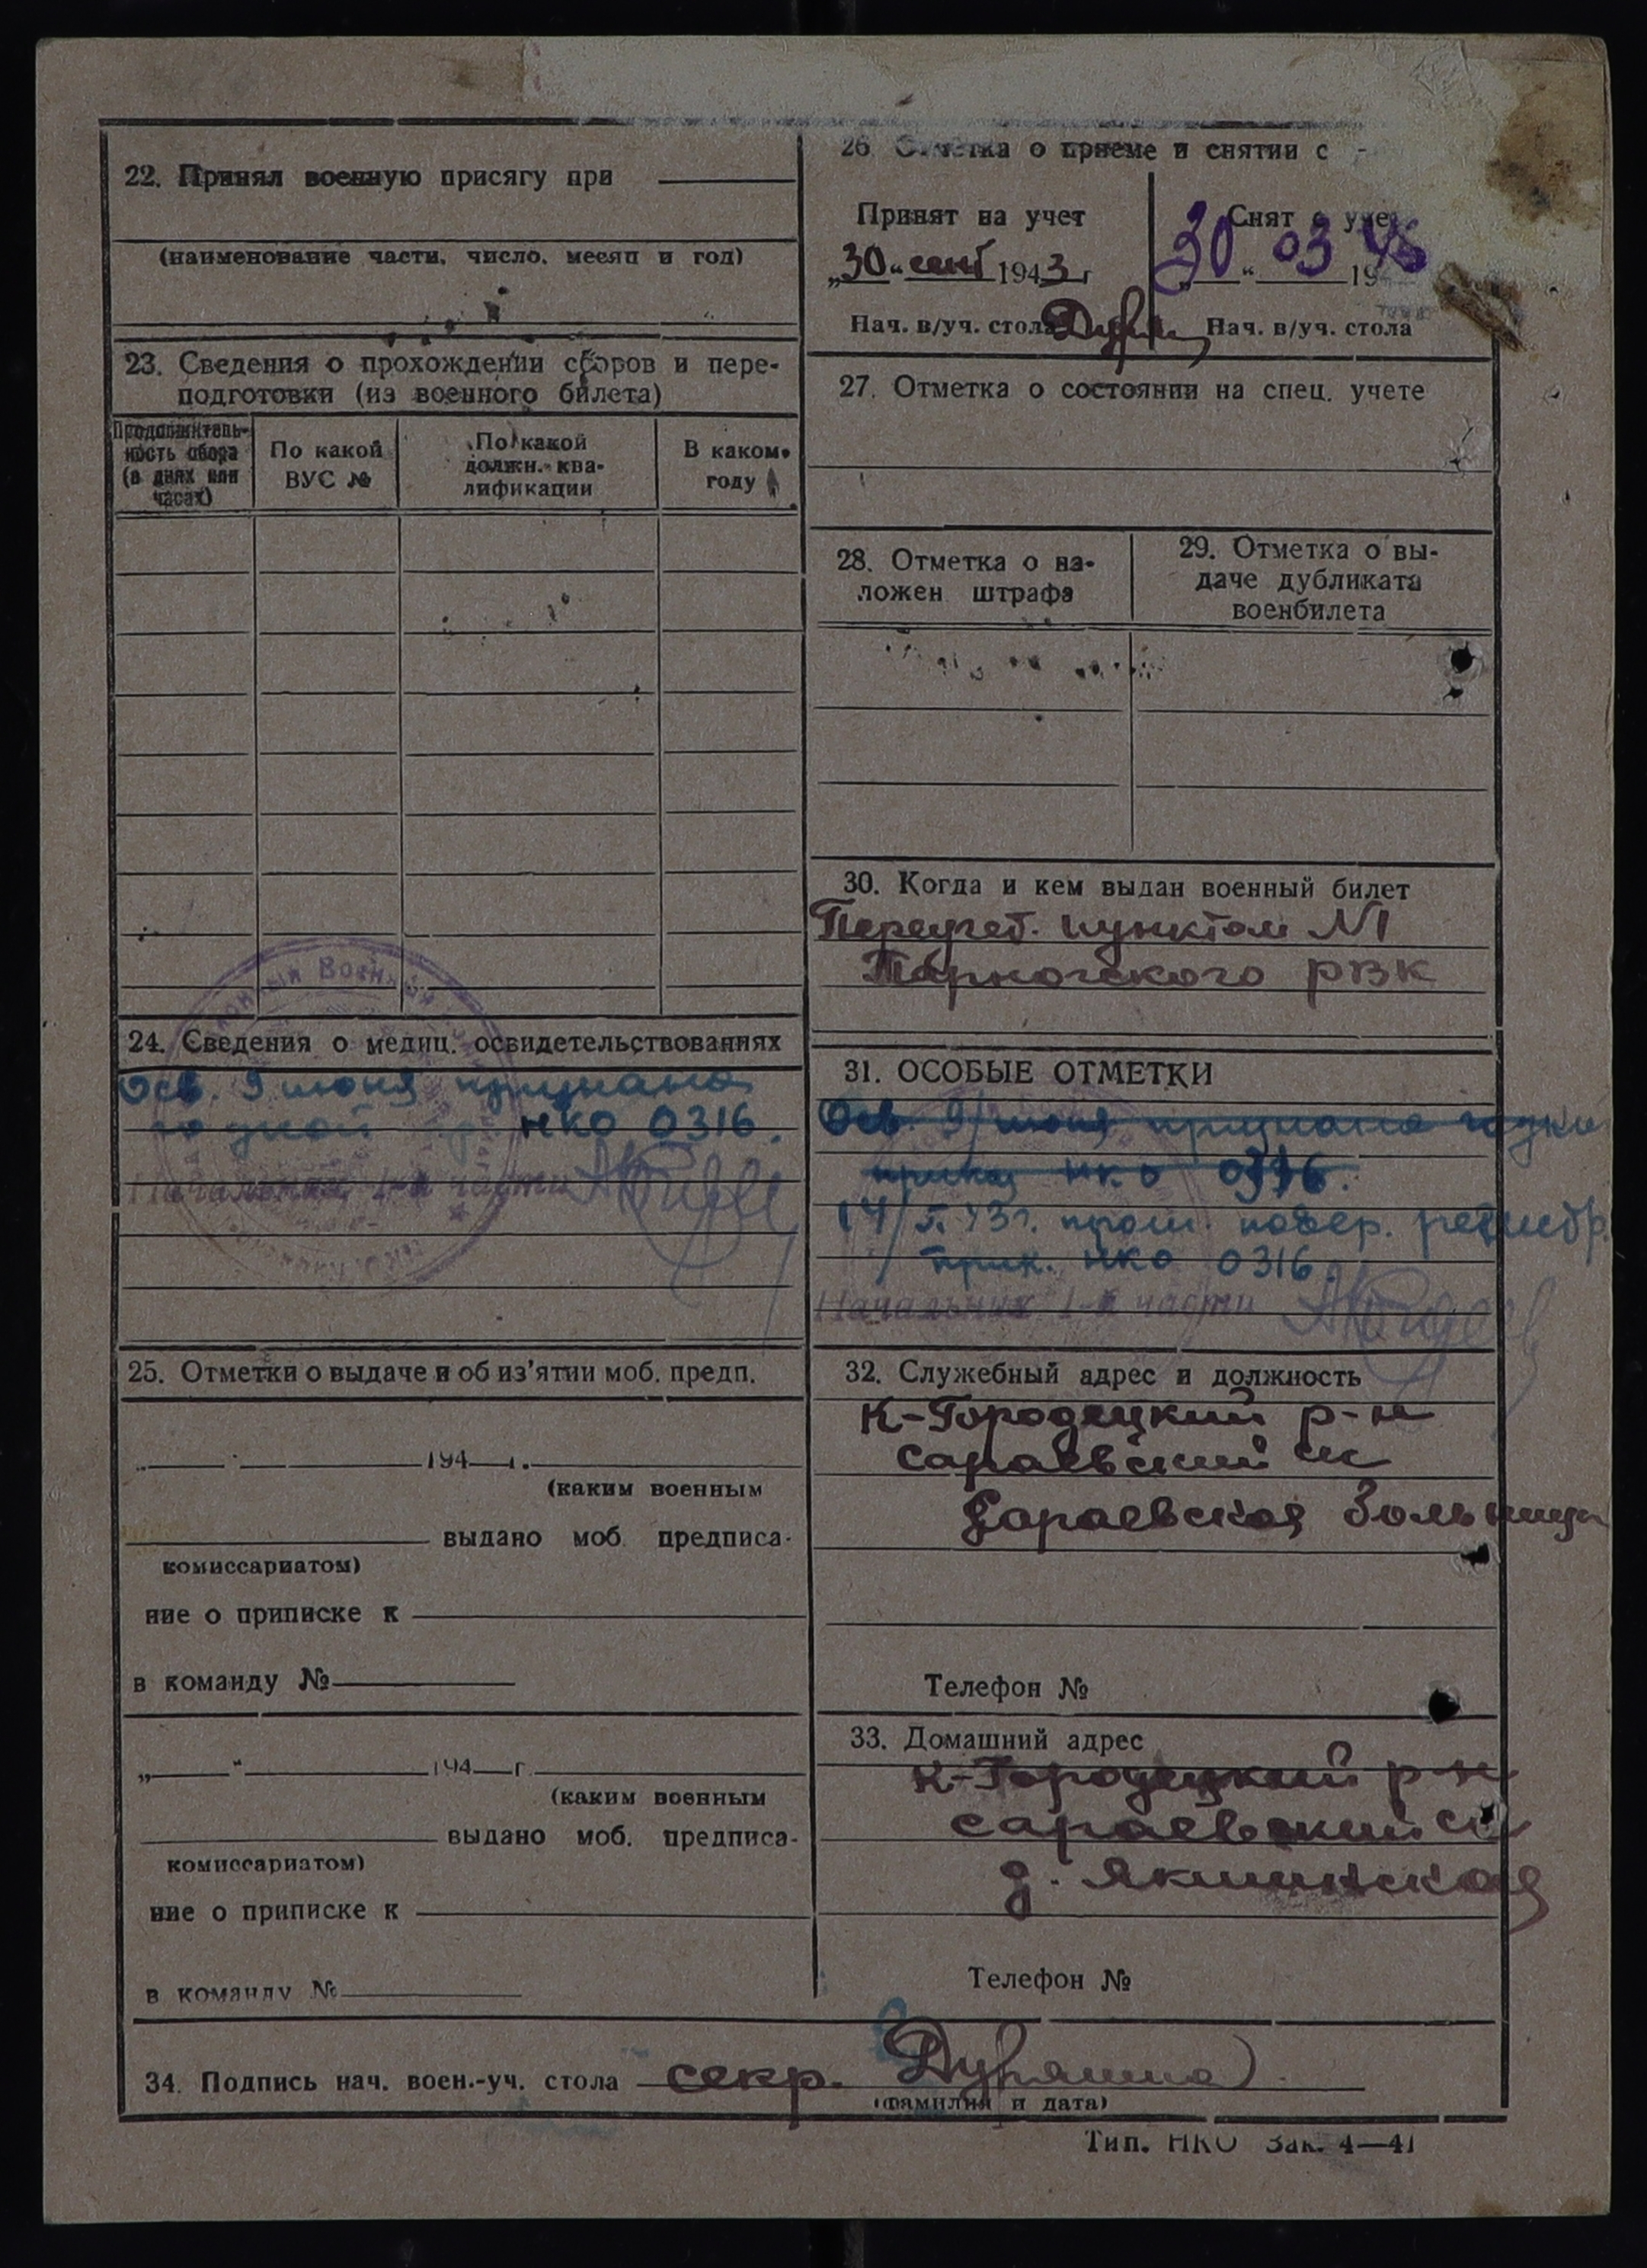 22. Принял военную присягу при
(наименование части, число, месяц и год)
23. Сведения о прохождении сборов и пере-
подготовки (из военного билета)
Продолжитель-
ность сбора
(в днях или
часах)
По какой
ВУС №
По какой
должн.- ква-
лификации
В каком
году
24. Сведения о медиц. освидетельствованиях
Осв. 9 июня признана
годной НКО 0316.
Начальник 1-й части
25. Отметки о выдаче и об из'ятии моб. предп.
„ “ 194 г.
(каким военным
выдано моб. предписа-
комиссариатом)
ние о приписке к
в команду №
„ “ 194 г.
(каким военным
выдано моб. предписа-
комиссариатом)
ние о приписке к
в команду №
26. Отметка о приеме и снятии с
Принят на учет
„30“ сент 1943 г
Нач. в/уч. стола
Снят с уче
30 “ 03 1945
Нач. в/уч. стола
27. Отметка о состоянии на спец. учете
28. Отметка о на-
ложен штрафа
29. Отметка о вы-
даче дубликата
военбилета
30. Когда и кем выдан военный билет
Переучет. пунктом №1
Тарногского РВК
31. ОСОБЫЕ ОТМЕТКИ
Осв. 9/ июня признана годной
приказ НКО 0316.
43г. прош. повер.
прик. НКО 0316.
Начальник 1-й части
32. Служебный адрес и должность
К-Городецкий р-н
Сараевский с/с
Сараевская больница
Телефон №
33. Домашний адрес
К-Городецкий р-н
Сараевский с/с
д. Якшинская
Телефон №
34. Подпись нач. воен.-уч. стола секр.
(фамилия и дата)
Тип. НКО Зак. 4—41